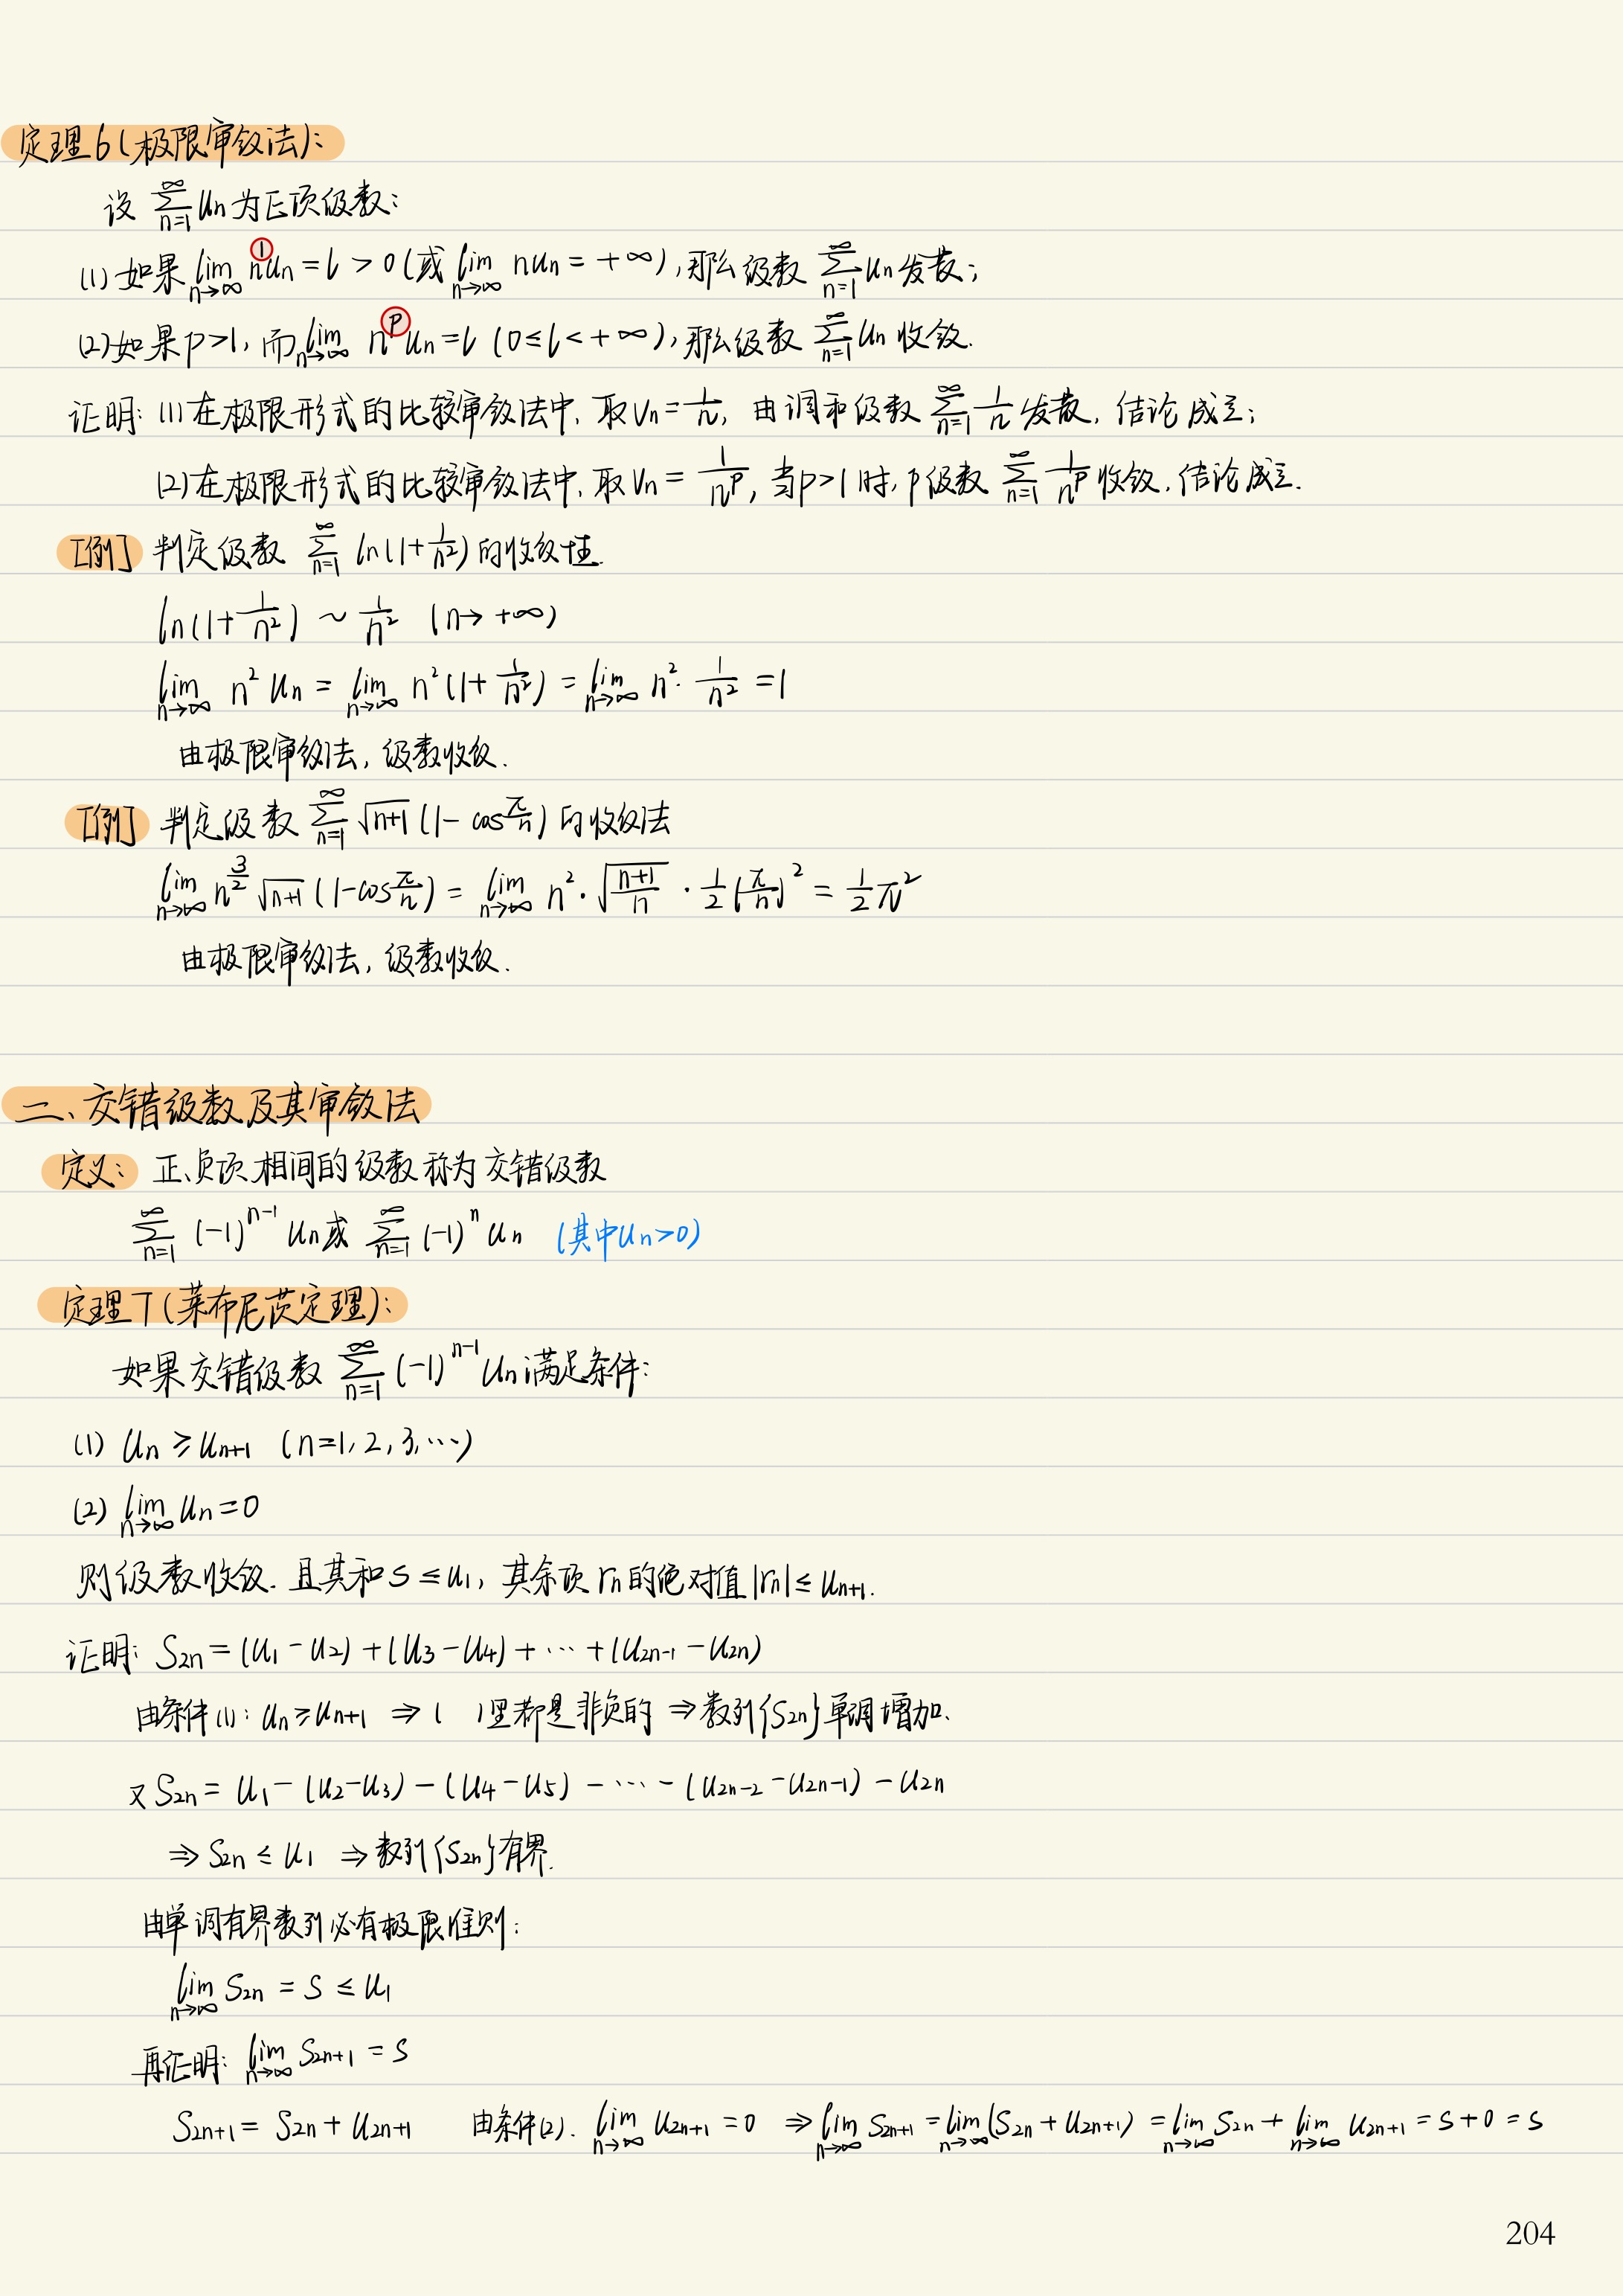 定理6(极限审敛法):
设 $\sum_{n=1}^{\infty} u_n$ 为正项级数:
(1) 如果 $\lim_{n\to\infty} n^{①} u_n = l > 0$ (或 $\lim_{n\to\infty} n u_n = +\infty$), 那么级数 $\sum_{n=1}^{\infty} u_n$ 发散;
(2) 如果 $p>1$, 而 $\lim_{n\to\infty} n^{p} u_n = l$ $(0 \le l < +\infty)$, 那么级数 $\sum_{n=1}^{\infty} u_n$ 收敛.
证明: (1) 在极限形式的比较审敛法中, 取 $v_n = \frac{1}{n}$, 由调和级数 $\sum_{n=1}^{\infty} \frac{1}{n}$ 发散, 结论成立;
(2) 在极限形式的比较审敛法中, 取 $v_n = \frac{1}{n^p}$, 当 $p>1$ 时, p级数 $\sum_{n=1}^{\infty} \frac{1}{n^p}$ 收敛, 结论成立.
[例] 判定级数 $\sum_{n=1}^{\infty} \ln(1+\frac{1}{n^2})$ 的收敛性.
$\ln(1+\frac{1}{n^2}) \sim \frac{1}{n^2}$ $(n\to +\infty)$
$\lim_{n\to\infty} n^2 u_n = \lim_{n\to\infty} n^2 (1+\frac{1}{n^2}) = \lim_{n\to\infty} n^2 \cdot \frac{1}{n^2} = 1$
由极限审敛法, 级数收敛.
[例] 判定级数 $\sum_{n=1}^{\infty} \sqrt{n+1}(1-\cos\frac{\pi}{n})$ 的收敛法
$\lim_{n\to\infty} n^{\frac{3}{2}} \sqrt{n+1}(1-\cos\frac{\pi}{n}) = \lim_{n\to\infty} n^2 \cdot \sqrt{\frac{n+1}{n}} \cdot \frac{1}{2}(\frac{\pi}{n})^2 = \frac{1}{2}\pi^2$
由极限审敛法, 级数收敛.
二、交错级数及其审敛法
定义: 正、负项相间的级数称为交错级数
$\sum_{n=1}^{\infty} (-1)^{n-1} u_n$ 或 $\sum_{n=1}^{\infty} (-1)^n u_n$ (其中 $u_n>0$)
定理7(莱布尼茨定理):
如果交错级数 $\sum_{n=1}^{\infty} (-1)^{n-1} u_n$ 满足条件:
(1) $u_n \ge u_{n+1}$ $(n=1,2,3,\cdots)$
(2) $\lim_{n\to\infty} u_n = 0$
则级数收敛. 且其和 $s \le u_1$, 其余项 $r_n$ 的绝对值 $|r_n| \le u_{n+1}$.
证明: $S_{2n} = (u_1-u_2)+(u_3-u_4)+\cdots+(u_{2n-1}-u_{2n})$
由条件(1): $u_n \ge u_{n+1}$ ⇒ ( )里都是非负的 ⇒ 数列$\{S_{2n}\}$单调增加.
又 $S_{2n} = u_1-(u_2-u_3)-(u_4-u_5)-\cdots-(u_{2n-2}-u_{2n-1})-u_{2n}$
⇒ $S_{2n} \le u_1$ ⇒ 数列$\{S_{2n}\}$有界.
由单调有界数列必有极限准则:
$\lim_{n\to\infty} S_{2n} = s \le u_1$
再证明: $\lim_{n\to\infty} S_{2n+1} = s$
$S_{2n+1} = S_{2n} + u_{2n+1}$ 由条件(2). $\lim_{n\to\infty} u_{2n+1} = 0$ ⇒ $\lim_{n\to\infty} S_{2n+1} = \lim_{n\to\infty}(S_{2n}+u_{2n+1}) = \lim_{n\to\infty} S_{2n} + \lim_{n\to\infty} u_{2n+1} = s+0 = s$
204